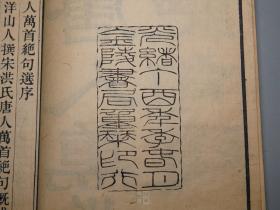 光緒十四年季春月
金陵書局重栞印行
人萬首絶句選序
洋山人撰宋洪氏唐人萬首絶句既